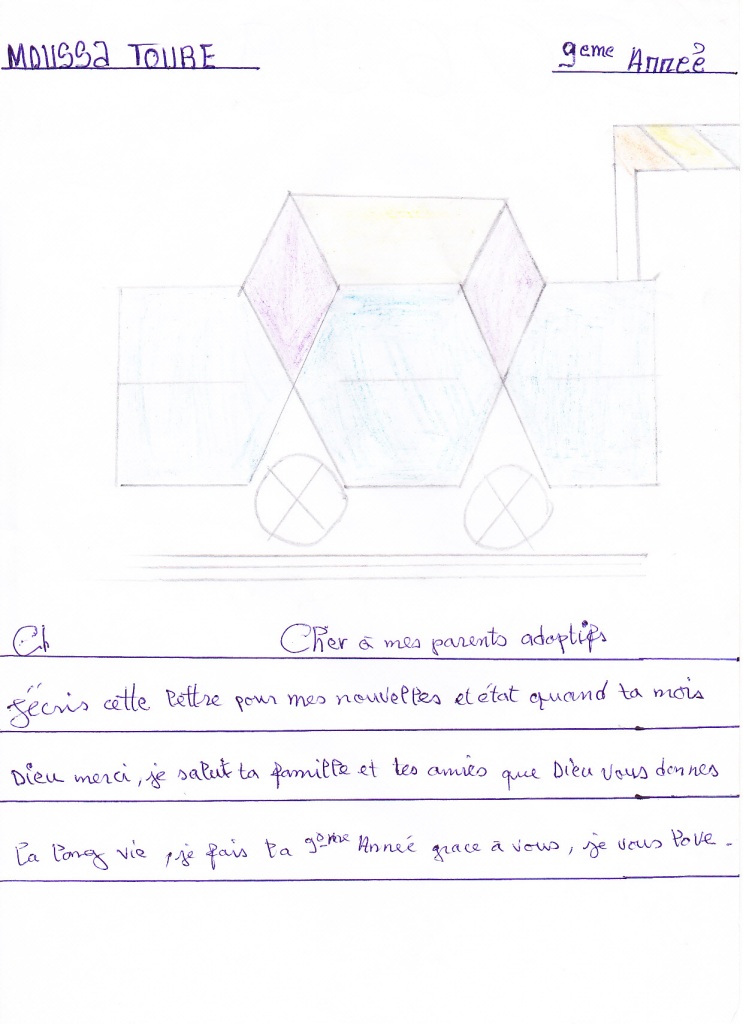 MOUSSA TOURE
9eme Année
Ch
Cher à mes parents adoptifs
J'écris cette lettre pour mes nouvelles et état quand ta mois
Dieu merci, je salut ta famille et les amies que Dieu vous donnes
la long vie, je fais la 9eme Année grace à vous, je vous love.